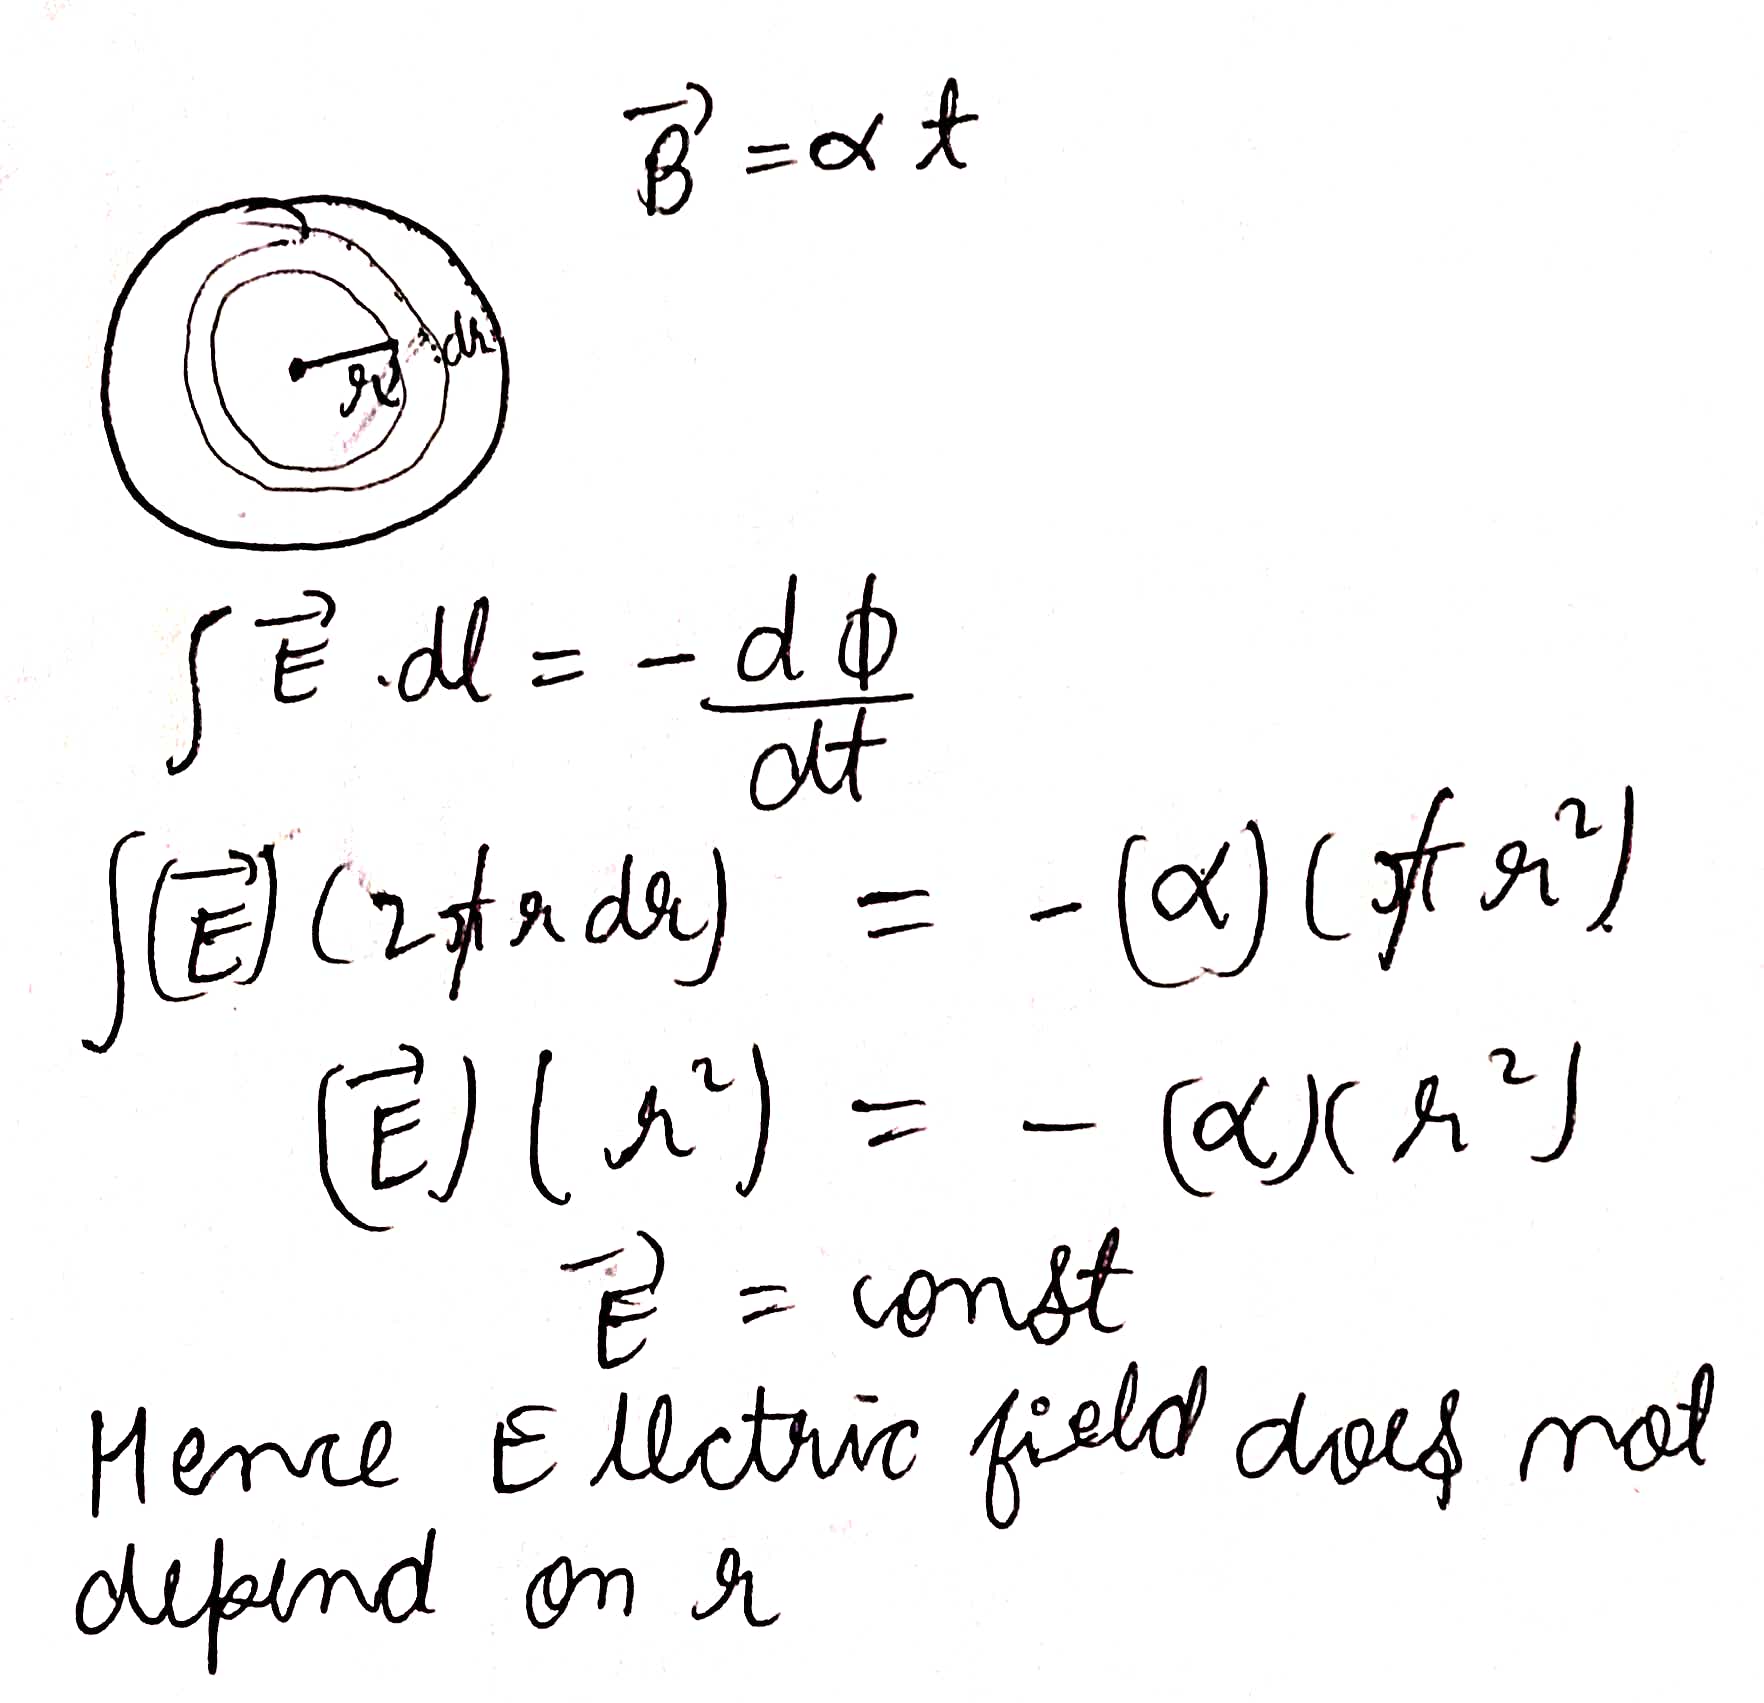 B⃗ = α t
r dr
∫ E⃗ . dl = - dϕ/dt
∫ (E⃗) (2π r dr) = - (α) (π r²)
(E⃗) ( r²) = - (α)( r²)
E⃗ = const
Hence Electric field does not
depend on r